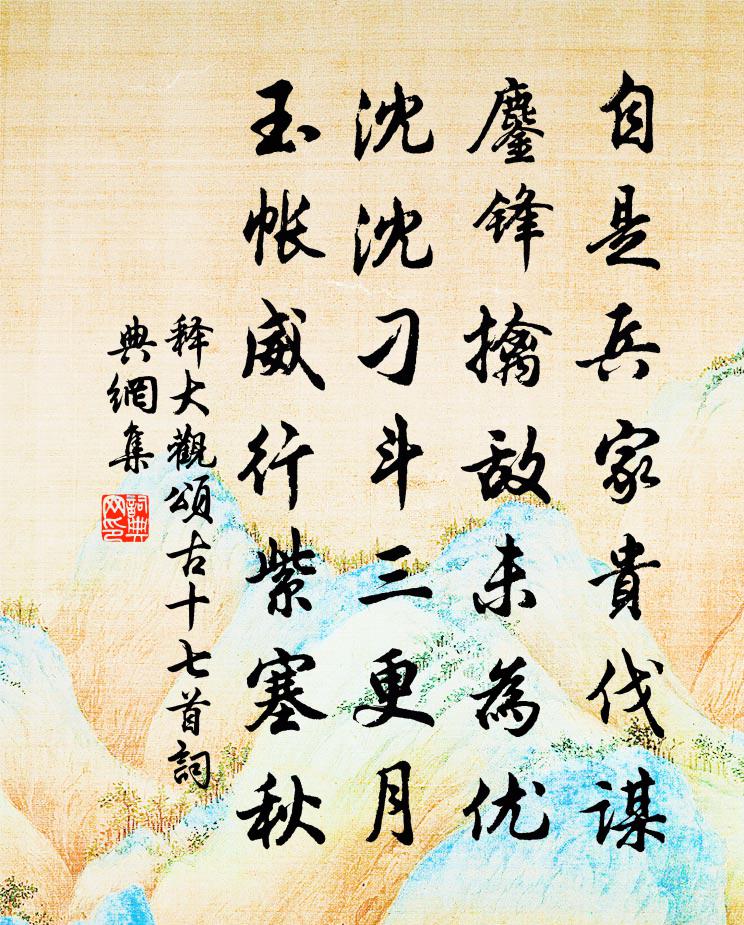 自是兵家貴伐謀
鏖锋擒敌未為优
沈沈刁斗三更月
玉帐威行紫塞秋
释大觀頌古十七首詞
典網集
詞典
网印